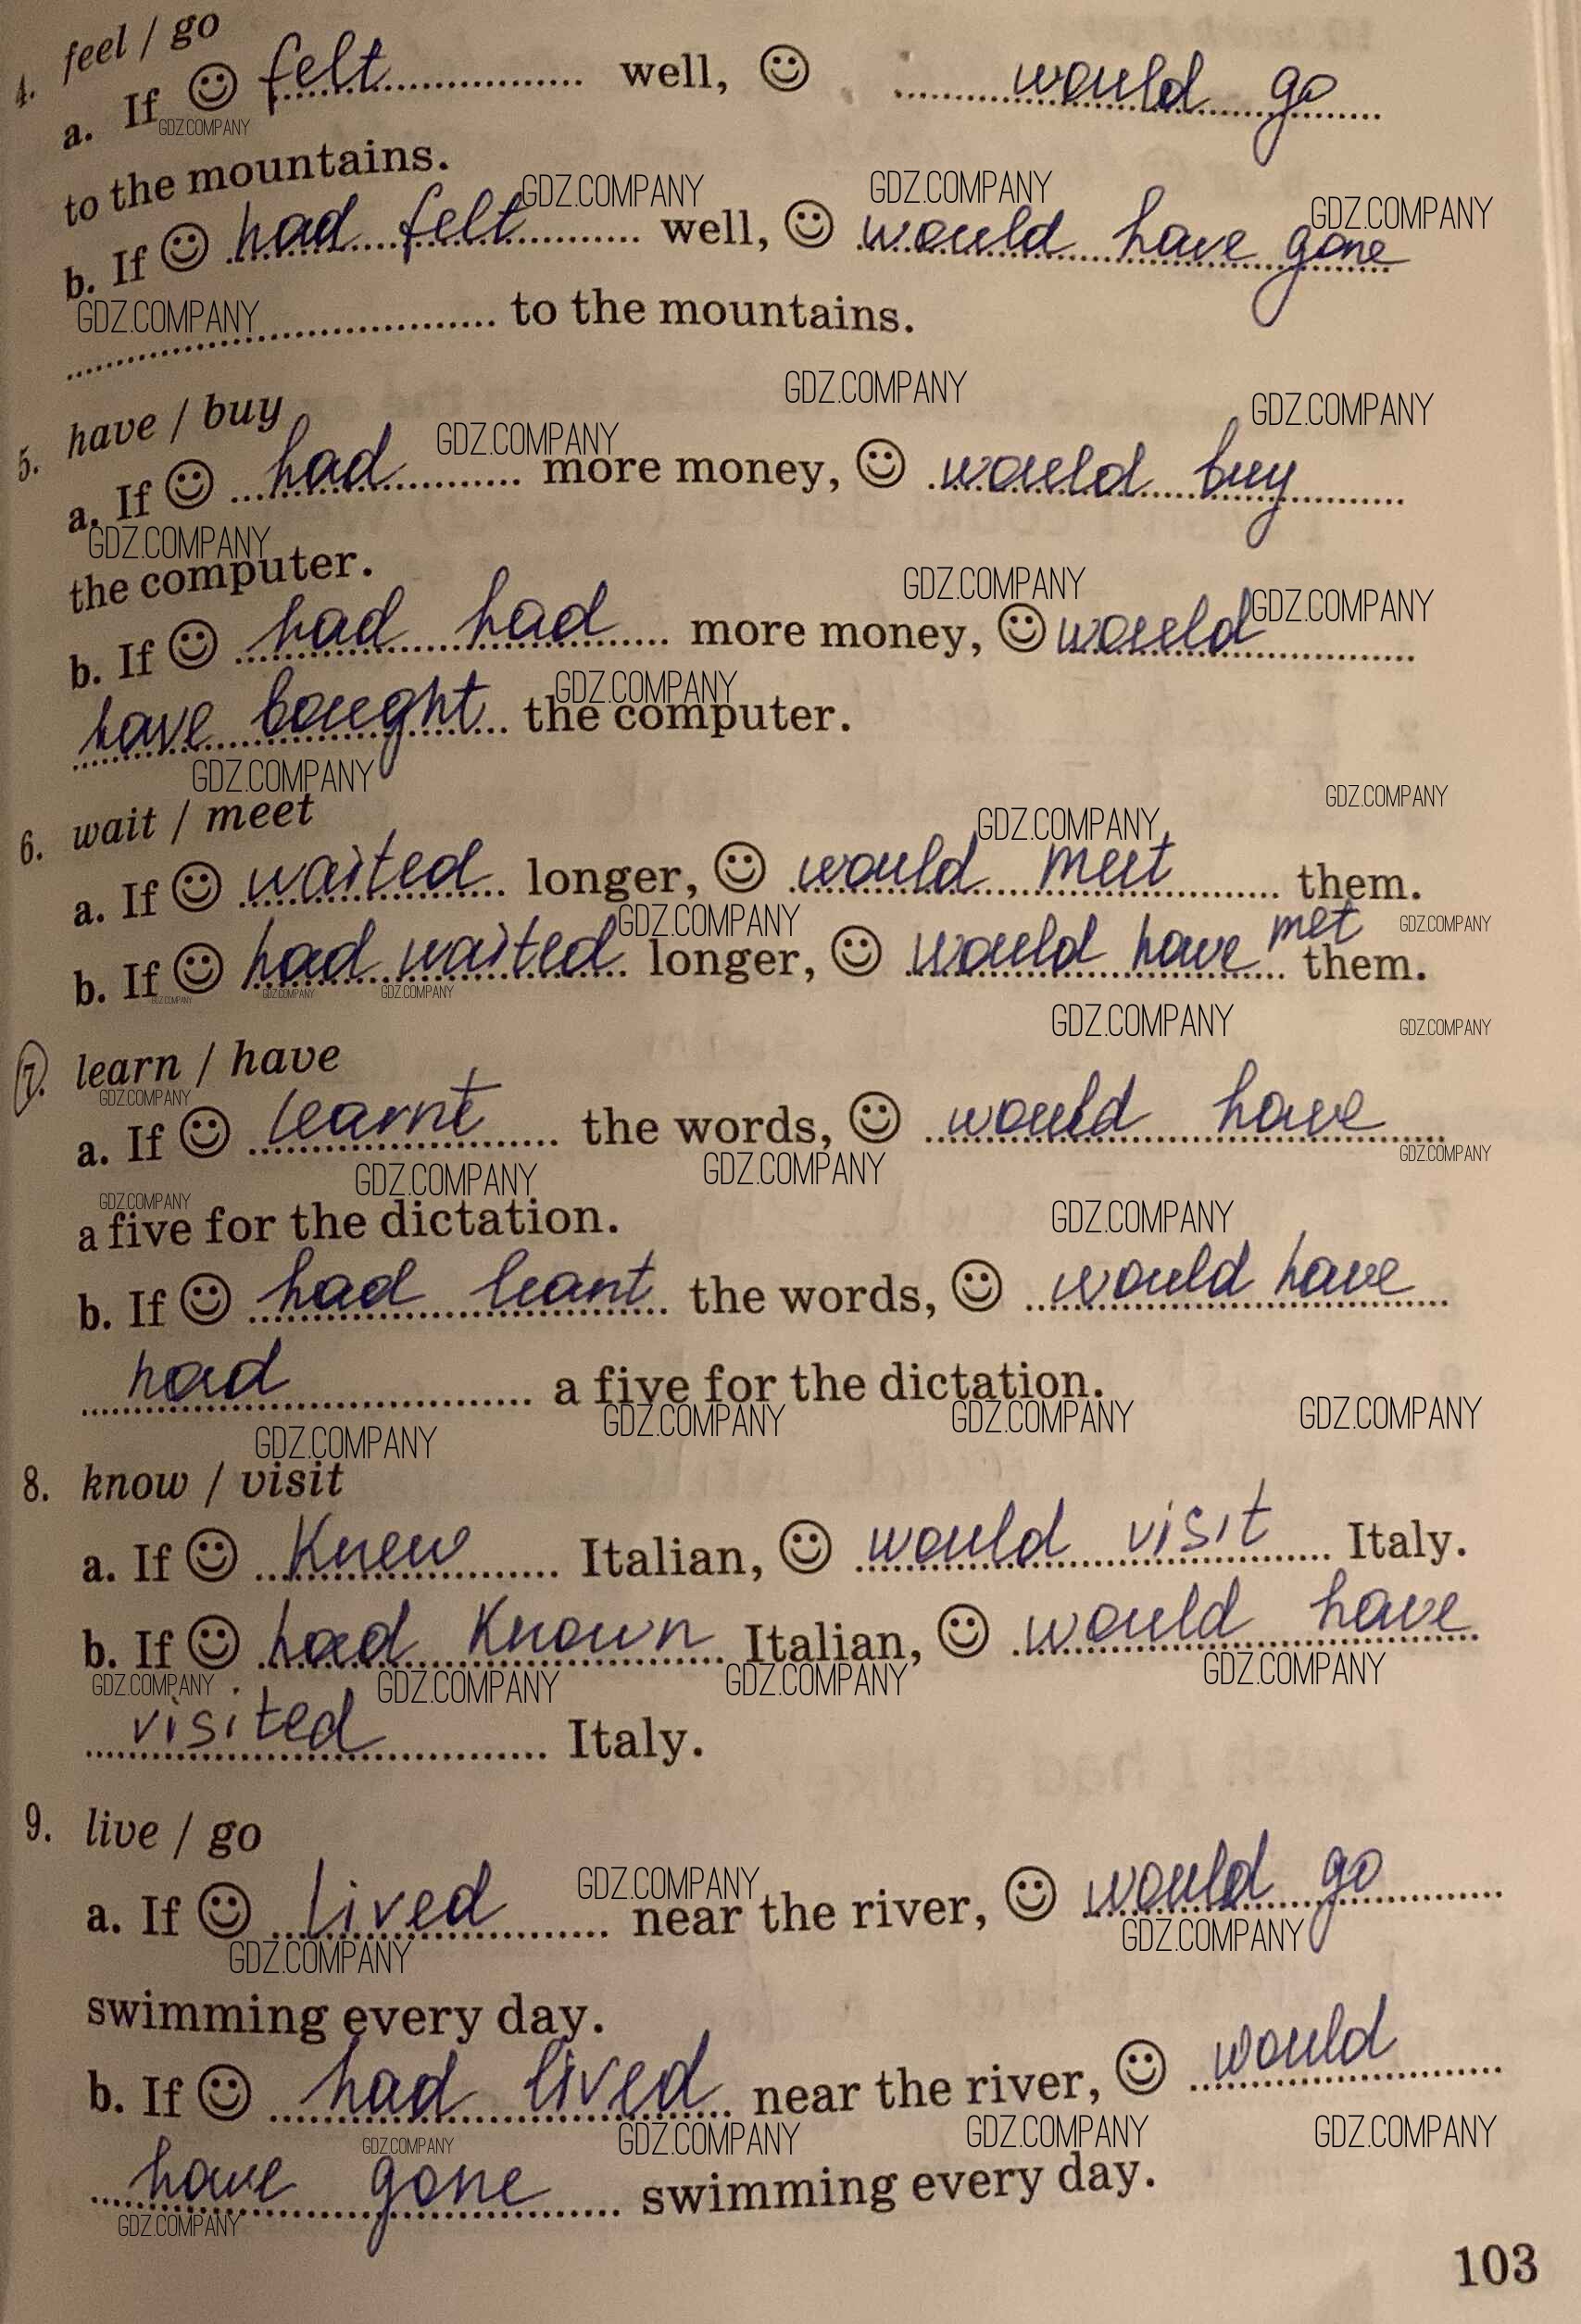 4. feel / go
a. If ☺ felt well, ☺ would go
to the mountains.
b. If ☺ had felt well, ☺ would have gone
to the mountains.
5. have / buy
a. If ☺ had more money, ☺ would buy
the computer.
b. If ☺ had had more money, ☺ would
have bought the computer.
6. wait / meet
a. If ☺ waited longer, ☺ would meet them.
b. If ☺ had waited longer, ☺ would have met them.
7. learn / have
a. If ☺ learnt the words, ☺ would have
a five for the dictation.
b. If ☺ had leant the words, ☺ would have
had a five for the dictation.
8. know / visit
a. If ☺ knew Italian, ☺ would visit Italy.
b. If ☺ had known Italian, ☺ would have
visited Italy.
9. live / go
a. If ☺ lived near the river, ☺ would go
swimming every day.
b. If ☺ had lived near the river, ☺ would
have gone swimming every day.
103
GDZ.COMPANY